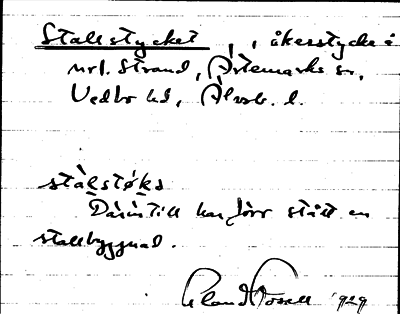 Stallstycket, åkerstycke å
nrl. Strand, Ärtemarks sn,
Vedbo hd, Älvsb. l.
stálstøka
Därintill har förr stått en
stallbyggnad.
1929